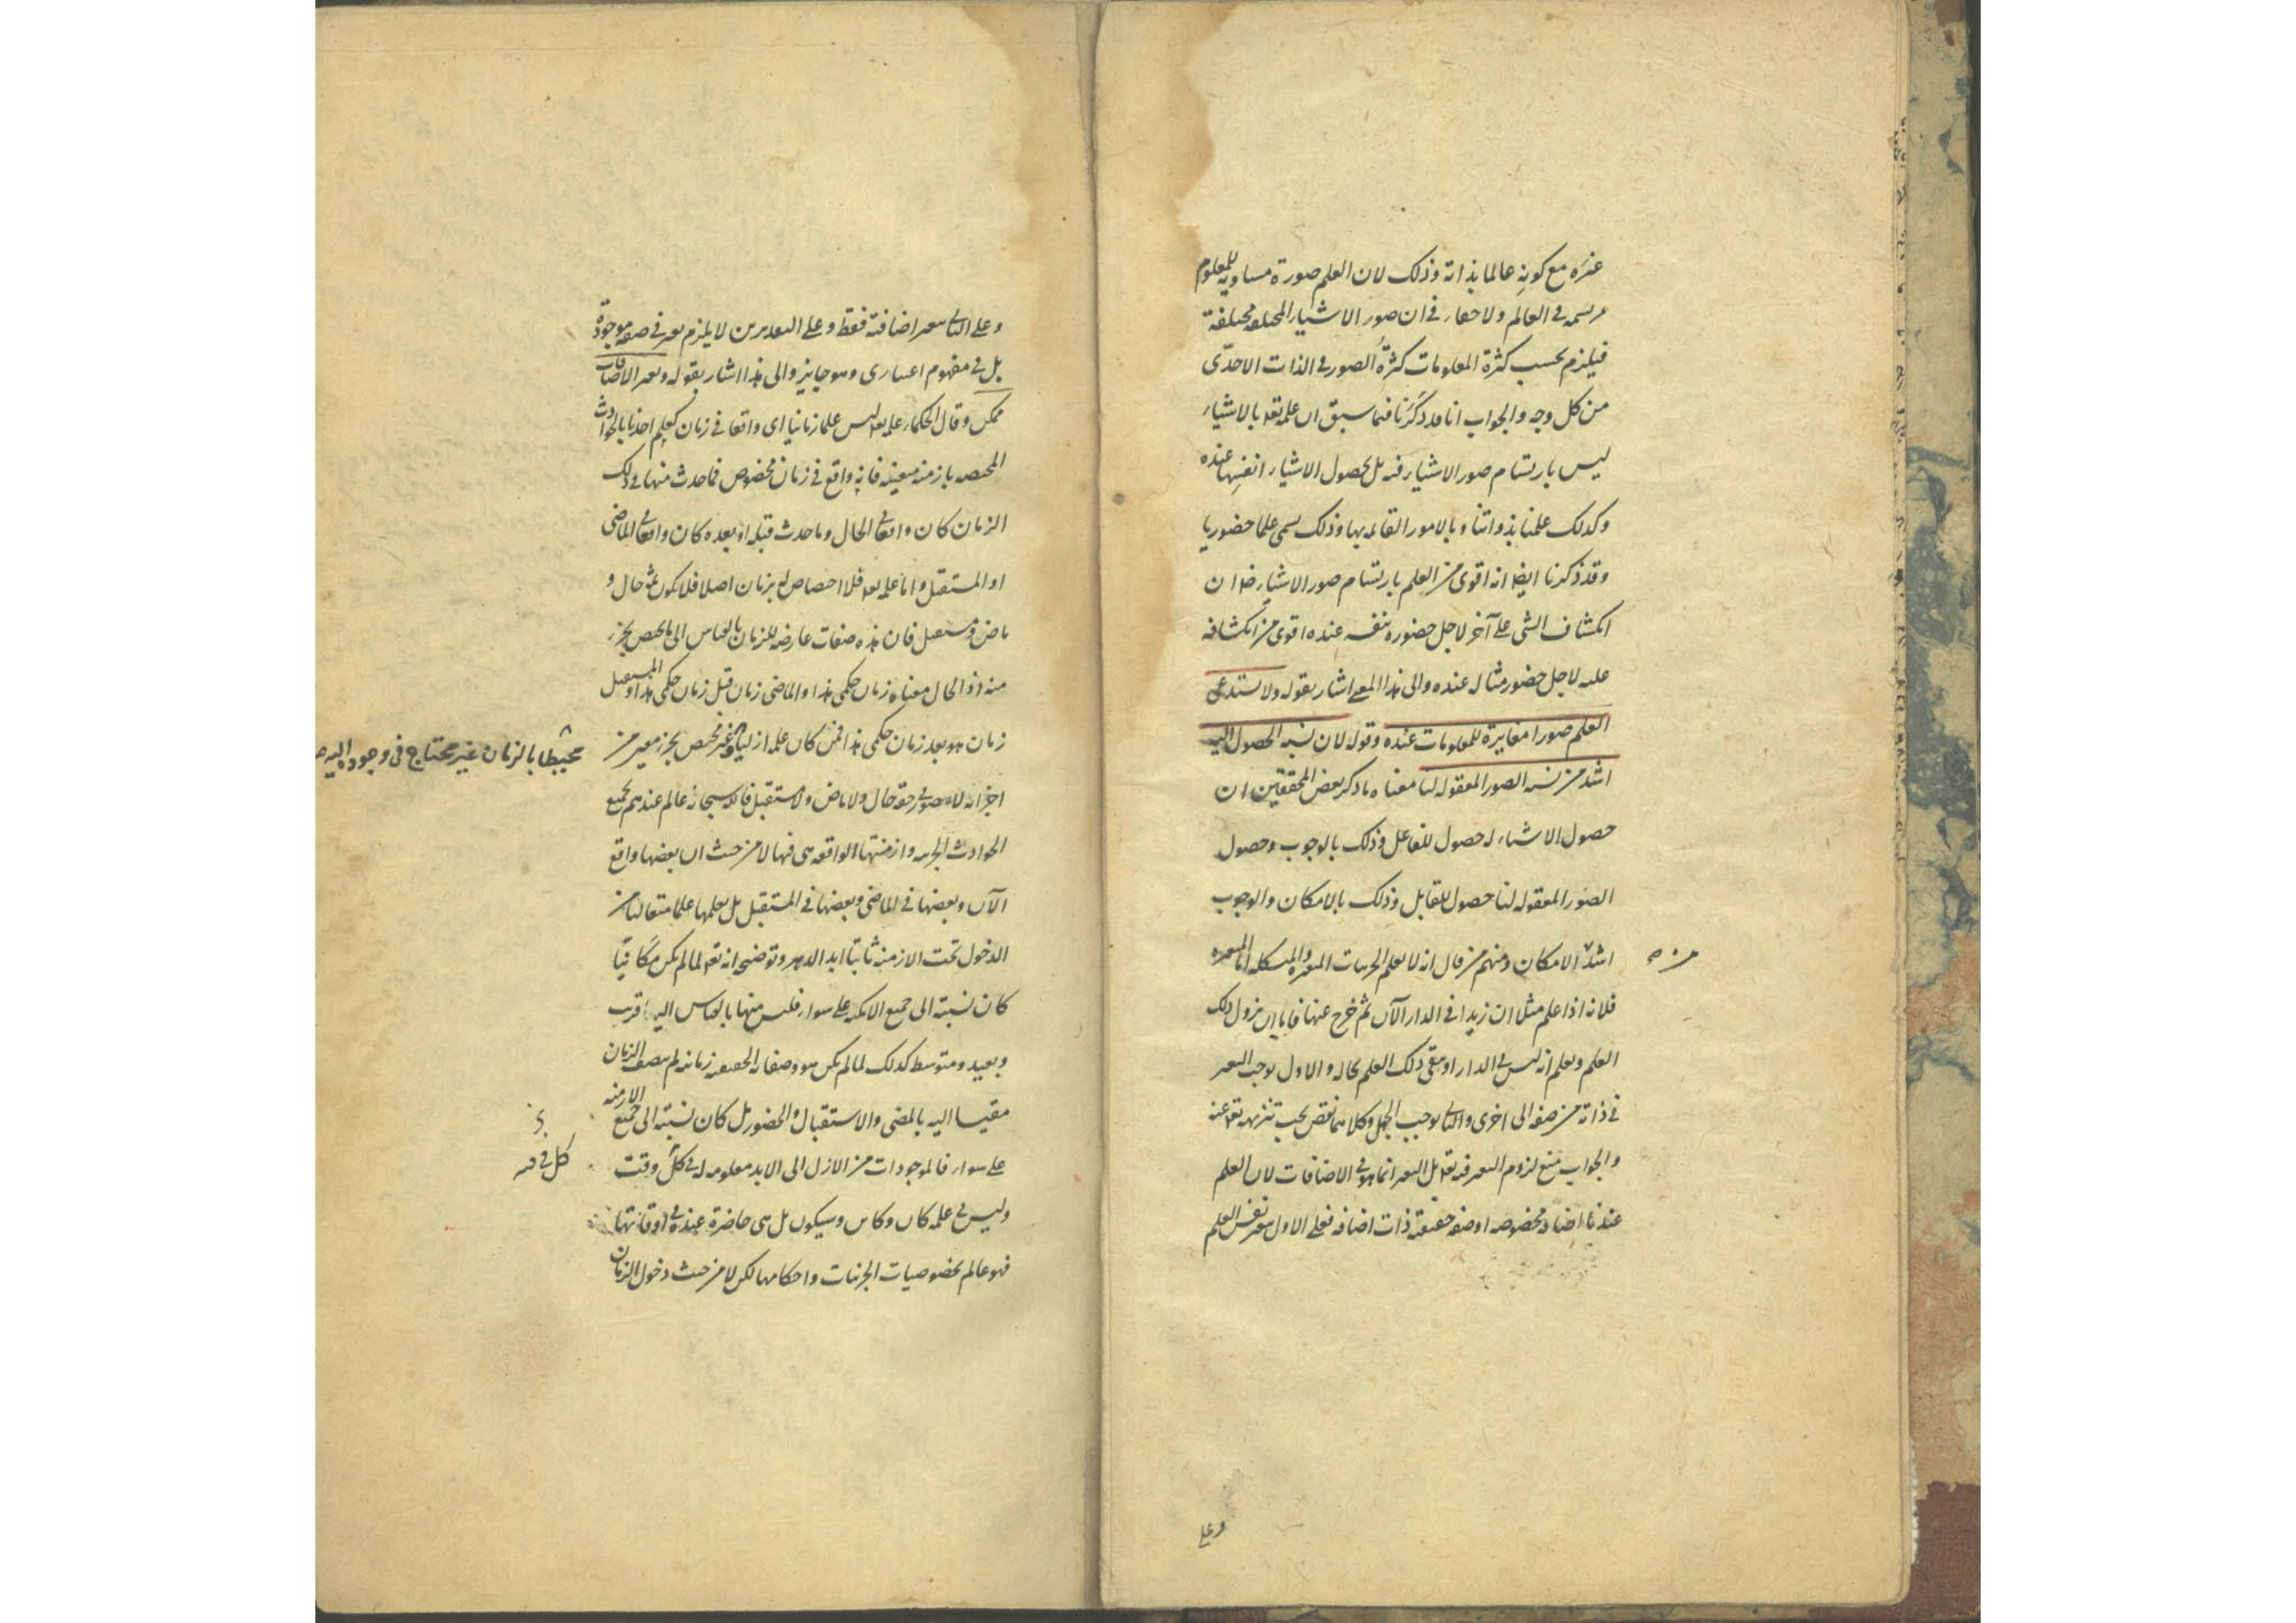 غيره مع كونه عالما بذاته وذلك لان العلم صورة مساوية للمعلوم
مرتسمة في العالم ولا خفاء في ان صور الاشياء المختلفة مختلفة
فيلزم بحسب كثرة المعلومات كثرة الصور في الذات الاحدى
من كل وجه والجواب انا قد ذكرنا فيما سبق ان علمه تعه بالاشياء
ليس بارتسام صور الاشياء فيه بل بحصول الاشياء انفسها عنده
وكذلك علمنا بذواتنا وبالامور القائمه بها وذلك يسمى علما حضوريا
وقد ذكرنا ايضا انه اقوى من العلم بارتسام صور الاشياء ضرا ان
انكشاف الشى على آخر لاجل حضوره بنفسه عنده اقوى من انكشافه
عليه لاجل حضور مثاله عنده والى هذا المعنى اشار بقوله ولا يستدعى
العلم صورا مغايرة للمعلومات عنده وقوله لان نسبة الحصول اليه
اشد من نسبة الصور المعقوله لنا معناه ما ذكر بعض المحققين ان
حصول الاشياء له حصول للفاعل وذلك بالوجوب وحصول
الصور المعقوله لنا حصول للقابل وذلك بالامكان والوجوب
اشد من الامكان ومنهم من قال انه لا يعلم الجزئيات المتغيره والمتشكله اما المتغيره
فلانه اذا علم مثلا ان زيدا في الدار الآن ثم خرج عنها فاما ان يزول ذلك
العلم ويعلم انه ليس في الدار او يبقى ذلك العلم بحاله والاول يوجب التغير
في ذاته من صفه الى اخرى والثانى يوجب الجهل وكلاهما نقص يجب تنزيهه تعه عنه
والجواب منع لزوم التغير فيه تعه بل التغير انما هو في الاضافات لان العلم
عندنا اضافه مخصوصه او صفه حقيقة ذات اضافه فعلى الاول يتغير نفس العلم
وعلى
وعلى الثانى يتغير اضافته فقط وعلى التقديرين لا يلزم تغير في صفه موجودة
بل في مفهوم اعتبارى وهو جايز والى هذا اشار بقوله وتغير الاضافات
ممكن وقال الحكماء علمه تعه ليس علما زمانيا اى واقعا في زمان كعلم احدنا بالحوادث
المختصه بازمنه معينه فانه واقع في زمان مخصوص فما حدث منها في ذلك
الزمان كان واقعا في الحال وما حدث قبله او بعده كان واقعا في الماضى
او المستقبل واما علمه تعه فلا اختصاص له بزمان اصلا فلا يكون ثمه حال و
ماض ومستقبل فان هذه صفات عارضه للزمان بالقياس الى ما يختص بجزء
منه اذ الحال معناه زمان حكمى هذا والماضى زمان قبل زمان حكمى هذا والمستقبل
زمان هو بعد زمان حكمى هذا فمن كان علمه ازليا وغير مختص بجزء معين من
محيطا بالزمان غير محتاج في وجوده اليه
اجزائه لا يتصور في حقه حال ولا ماض ولا مستقبل فالله سبحانه عالم عندهم بجميع
الحوادث الجزئيه وازمنتها الواقعه هى فيها لا من حيث ان بعضها واقع
الآن وبعضها في الماضى وبعضها في المستقبل بل يعلمها علما متعاليا من
الدخول تحت الازمنه ثابتا ابد الدهر وتوضيحه انه تعه لما لم يكن مكانيا
كان نسبته الى جميع الامكنه على سواء فليس منها بالقياس اليه قريب
وبعيد ومتوسط كذلك لما لم يكن هو وصفاته الحقيقيه زمانيه لم يتصف الزمان
مقيسا اليه بالمضى والاستقبال والحضور بل كان نسبته الى جميع الازمنه
على سواء فالموجودات من الازل الى الابد معلومه له في كل وقت
كل في
وليس في علمه كان وكائن وسيكون بل هى حاضرة عنده في اوقاتها
فهو عالم بخصوصيات الجزئيات واحكامها لكن لا من حيث دخول الزمان